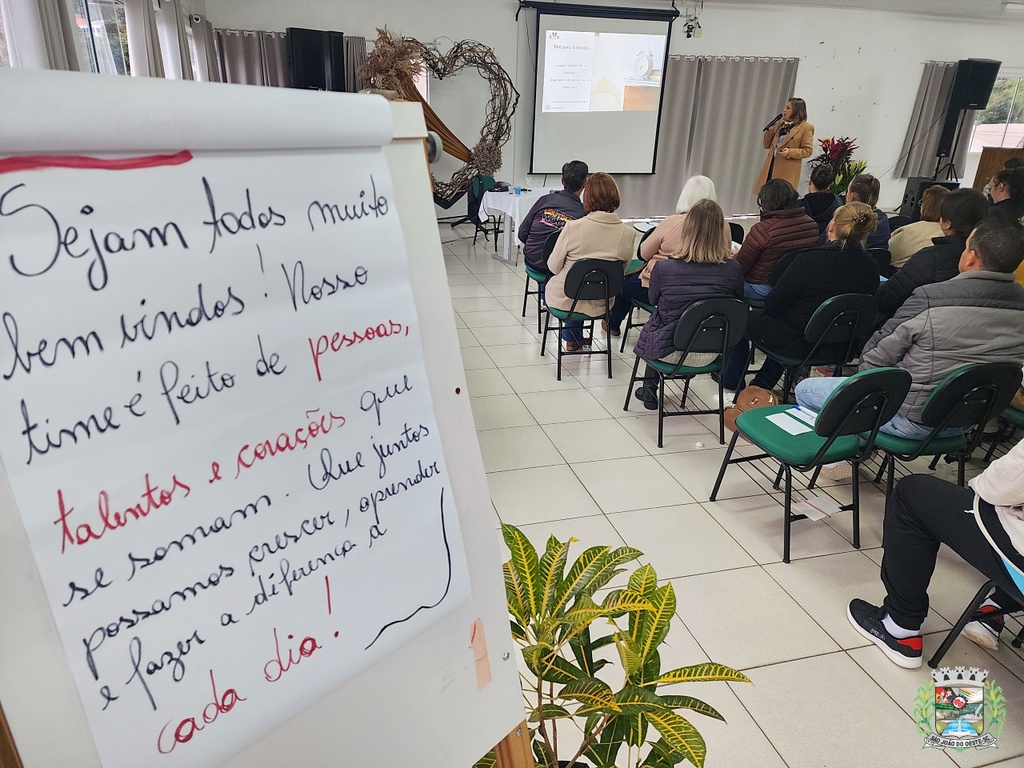 Sejam todos muito
bem vindos! Nosso
time é feito de pessoas,
talentos e corações que
se somam. Que juntos
possamos crescer, aprender
e fazer a diferença a
cada dia!
SÃO JOÃO DO OESTE-SC